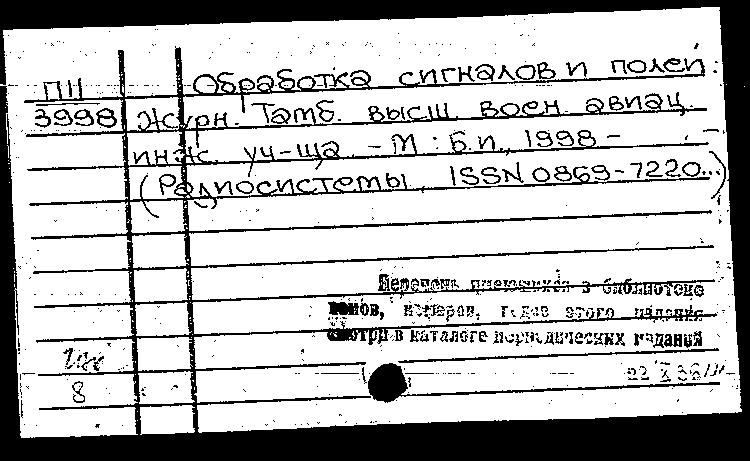 ПН Обработка сигналов и полей:
3998 Журн. Тамб. высш. воен. авиац.
инж. уч-ща. - М: Б.и., 1998 -
(Радиосистемы, ISSN 0869-7220...)
Перечень имеющихся в библиотеке
томов, номеров, годов этого издания
смотри в каталоге периодических изданий
8